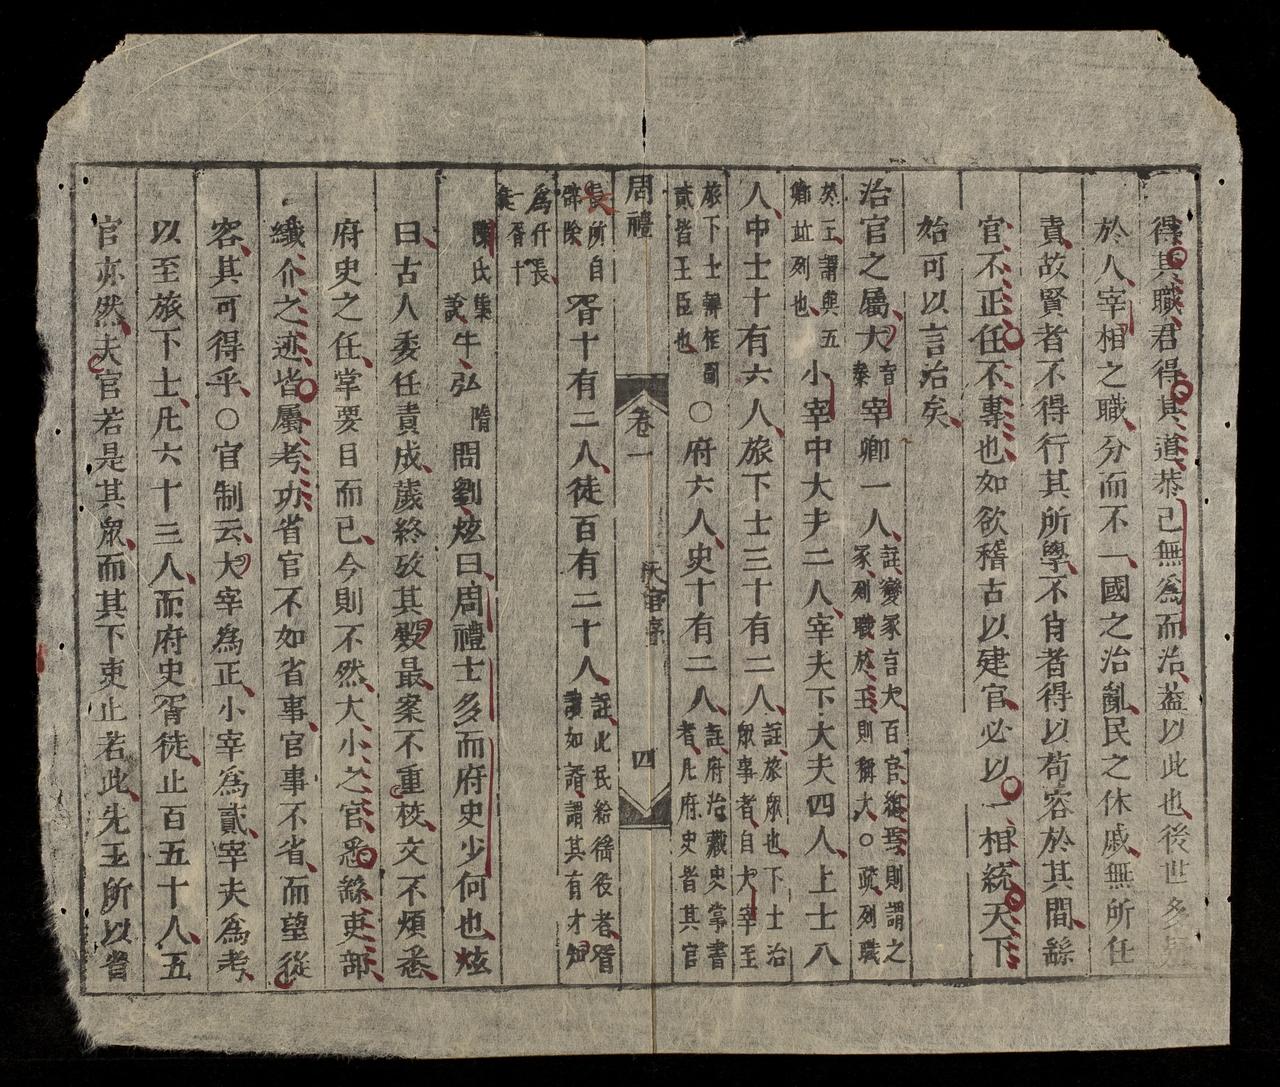 得其職君得其道恭己無爲而治蓋以此也後世多
於人宰相之職分而不一國之治亂民之休戚無所任
責故賢者不得行其所學不肖者得以苟容於其間繇
官不正任不專也如欲稽古以建官必以一相統天下
始可以言治矣
治官之屬大音泰宰卿一人註變冢言大百官緫焉則謂之
冢列職於王則稱大○疏列職
於王謂與五
卿並列也小宰中大夫二人宰夫下大夫四人上士八
人中士十有六人旅下士三十有二人註旅衆也下士治
衆事者自大宰至
旅下士轉相副
貳皆王臣也○府六人史十有二人註府治藏史掌書
者凡府史皆其官
周禮 卷一 天官序 四
長所自
辟除胥十有二人徒百有二十人註此民給徭役者胥
讀如諝謂其有才知
爲什長
一胥十
徒
陳氏集
說牛弘隋問劉炫曰周禮士多而府史少何也炫
曰古人委任責成歲終攷其殿最案不重校文不煩悉
府史之任掌要目而已今則不然大小之官悉繇吏部
纖介之迹皆屬考功省官不如省事官事不省而望從
容其可得乎○官制云大宰爲正小宰爲貳宰夫爲考
以至旅下士凡六十三人而府史胥徒止百五十人五
官亦然夫官若是其衆而其下吏止若此先王所以省